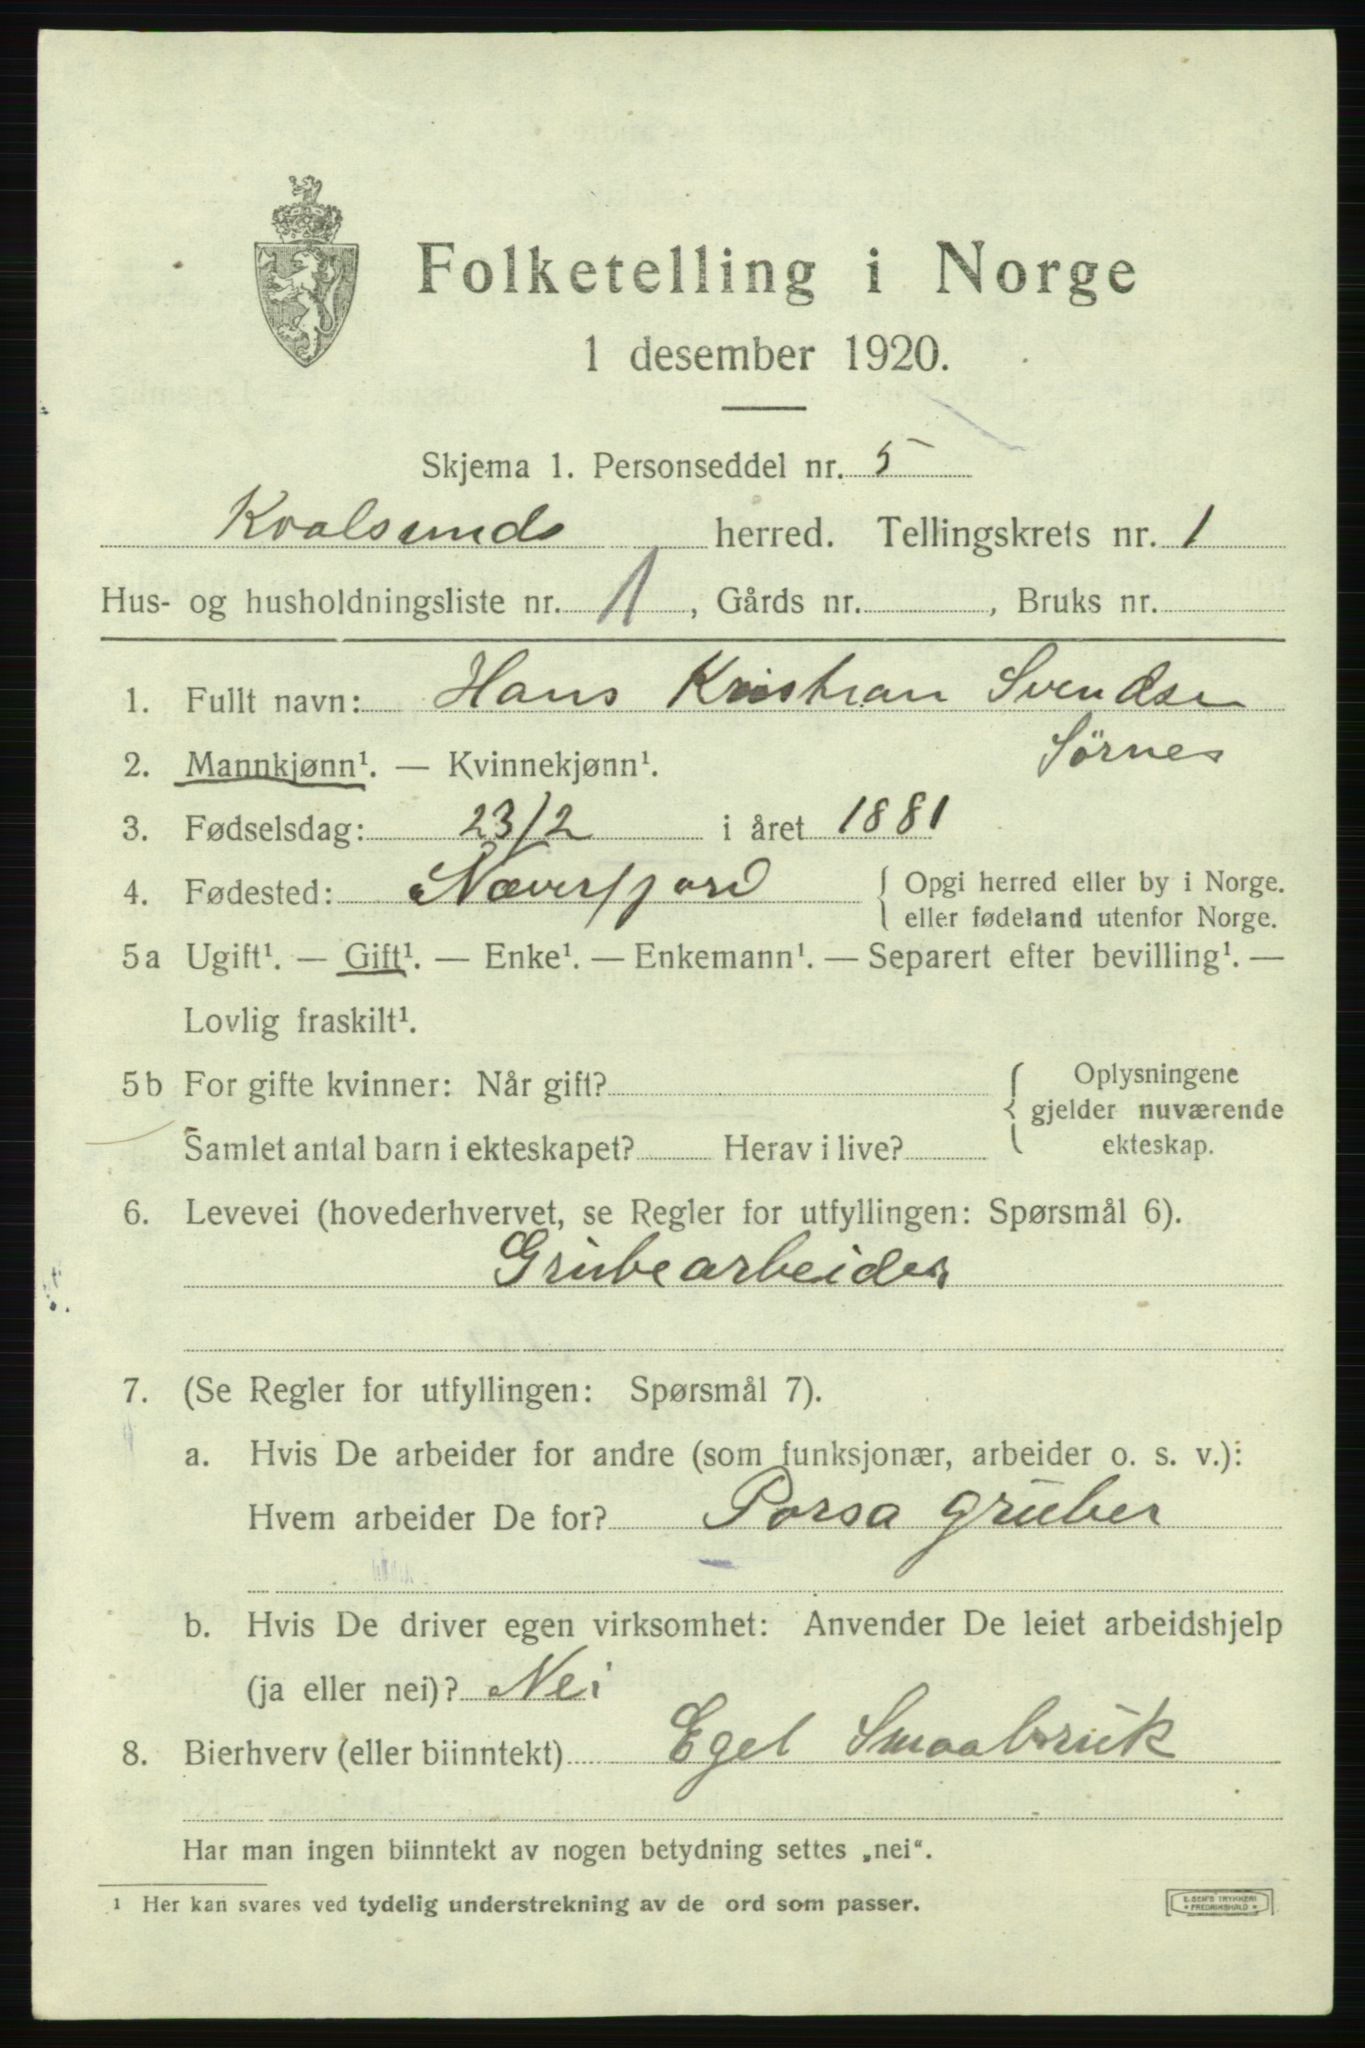 Folketelling i Norge
1 desember 1920.
Skjema 1. Personseddel nr. 5
Kvalsunds herred. Tellingskrets nr. 1
Hus- og husholdningsliste nr. 1, Gårds nr. , Bruks nr.
1. Fullt navn: Hans Kristian Svendsen
Sörnes
2. Mannkjønn¹. — Kvinnekjønn¹.
3. Fødselsdag: 23/2 i året 1881
4. Fødested: Næverfjord { Opgi herred eller by i Norge.
eller fødeland utenfor Norge.
5a Ugift¹. — Gift¹. — Enke¹. — Enkemann¹. — Separert efter bevilling¹. —
Lovlig fraskilt¹.
5b For gifte kvinner: Når gift? { Oplysningene
gjelder nuværende
Samlet antal barn i ekteskapet? Herav i live? ekteskap.
6. Levevei (hovederhvervet, se Regler for utfyllingen: Spørsmål 6).
Grubearbeider
7. (Se Regler for utfyllingen: Spørsmål 7).
a. Hvis De arbeider for andre (som funksjonær, arbeider o. s. v.):
Hvem arbeider De for? Porsa gruber
b. Hvis De driver egen virksomhet: Anvender De leiet arbeidshjelp
(ja eller nei)? Nei
8. Bierhverv (eller biinntekt) Eget Smaabruk
Har man ingen biinntekt av nogen betydning settes „nei“.
¹ Her kan svares ved tydelig understrekning av de ord som passer.
E. SEM'S TRYKKERI
* FREDRIKSHALD *